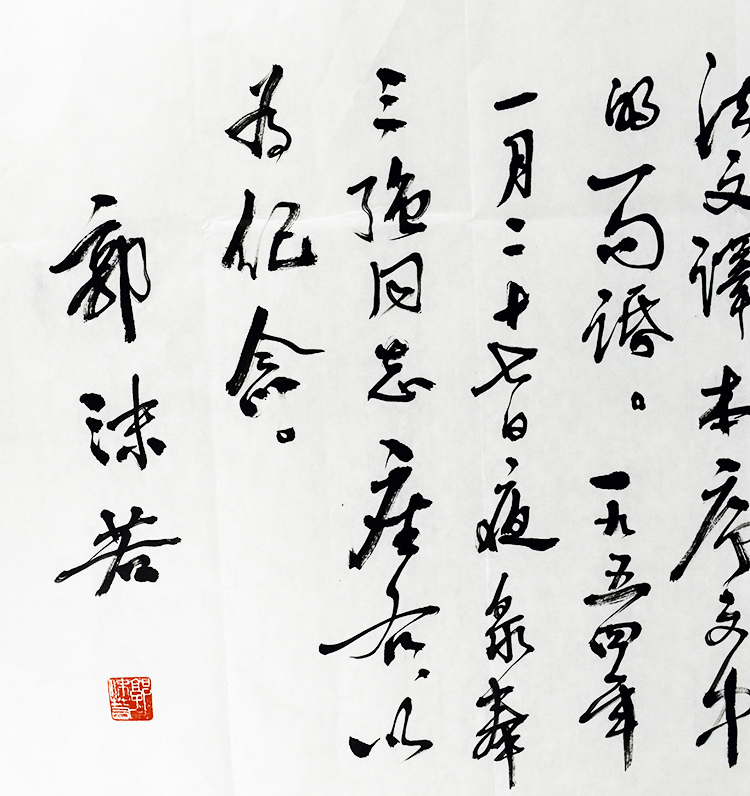 法文譯本序文中
的一句話。一九五四年
一月二十七日夜录奉
三强同志座右，以
为纪念。
郭沫若
郭沫若